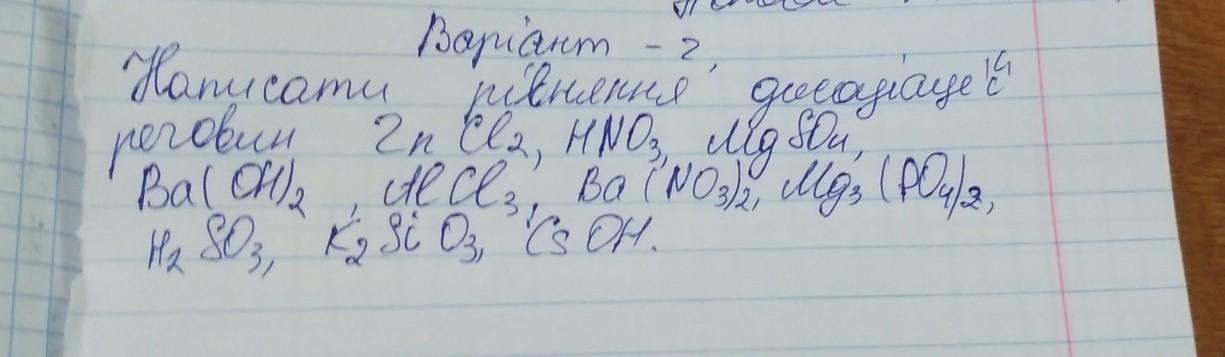 Варіант - 2,
Написати рівняння дисоціацеій
речовин Zn Cl2, HNO3, MgSO4,
Ba(OH)2, AlCl3, Ba(NO3)2, Mg3(PO4)2,
H2SO3, K2SiO3, CsOH.